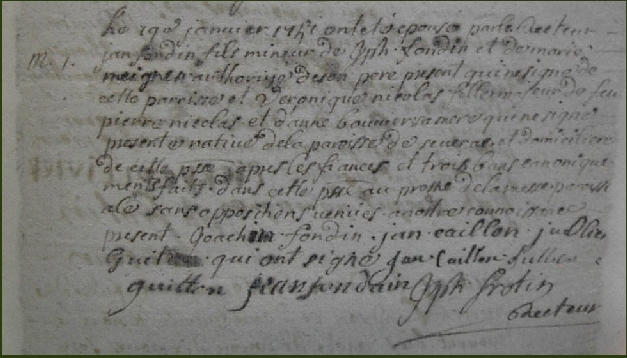 Le 19e janvier 1751 ont eté epousé par le recteur
jan fondin fils mineur de Jph fondin et de marie
M. 1. meignen authorizé de son pere present qui ne signe de
cette paroisse et Veronique nicolas fille mineur de feu
pierre nicolas et d'anne bouvier sa mere qui ne signe
presente native de la paroisse de severac et domiciliere
de cette psse apres les fiances et trois bans canonique
ment faits dans cette psse au prosne de la messe paroissi
ale sans oppositions venües a notre connoissance
present Joachim fondin jan caillon jullien
Guiton qui ont signe jan Caillon Jullien
guitton jean fondain Jph frotin
recteur